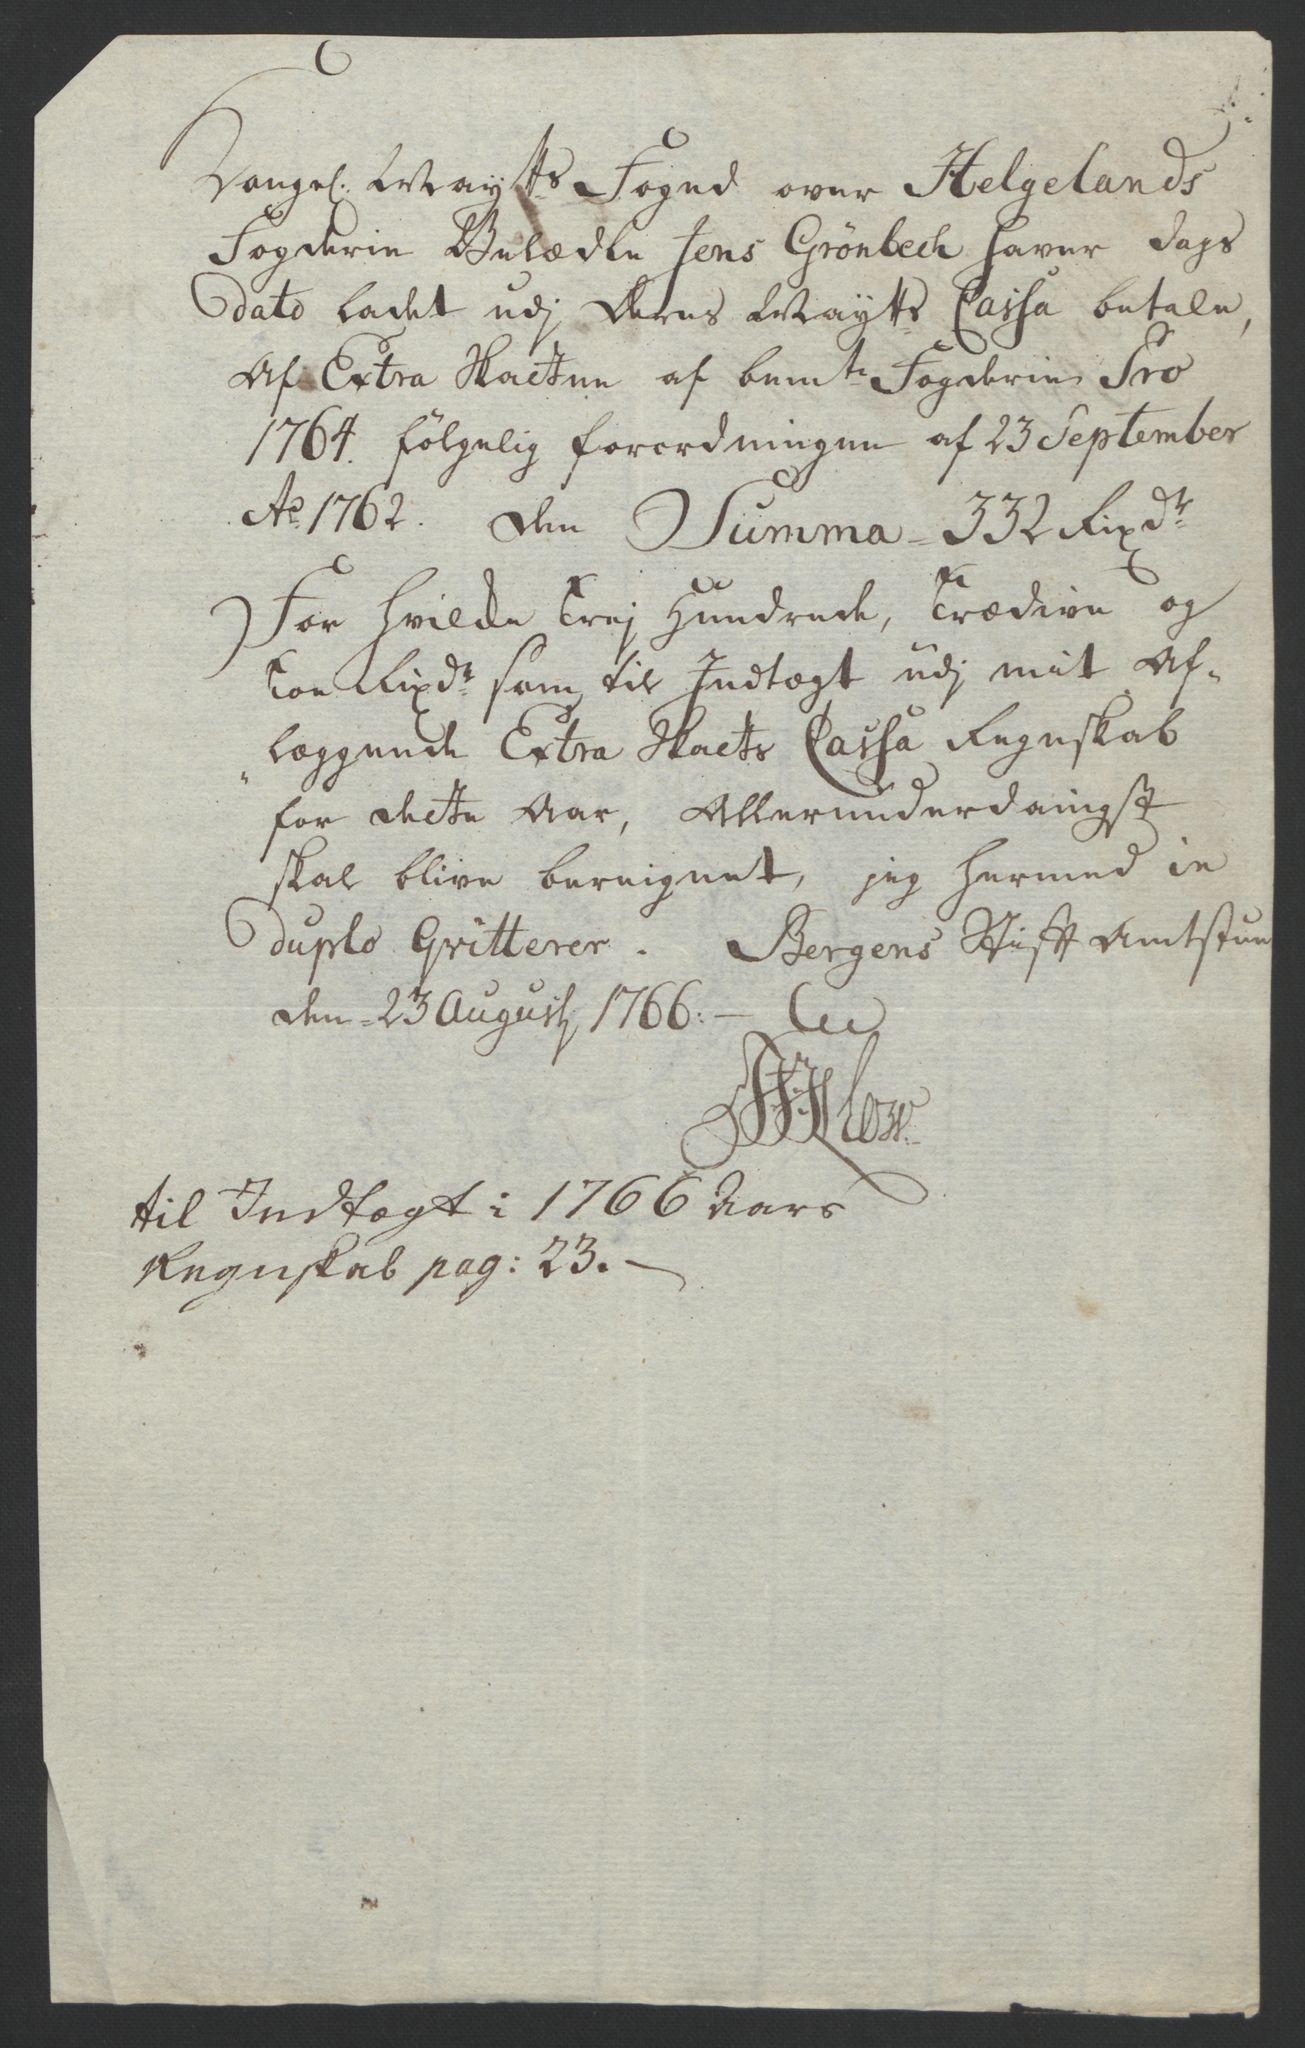 Kongel. Mayts Foged over Helgelands
Fogderie Velædle Jens Grönbech haver dags
dato ladet udj Deres Mayts Cassa betale,
Af Extra Skatten af bemte Fogderie Pro
1764 fölgelig forordningen af 23 September
Ao 1762. den Summa = 332 Rixdr
For hvilke Trej Hundrede, Trædive og
Toe Rixdr som til Indtægt udj mit Af-
læggende Extra Skatts Cassa Regnskab
for dette Aar, Allerunderdanigst
skal blive beregnet, jeg hermed in
duplo Qvitterer. Bergens Stift Amtstue
den = 23 August 1766. —
til Indtægt i 1766 Aars
Regnskab pag: 23. —